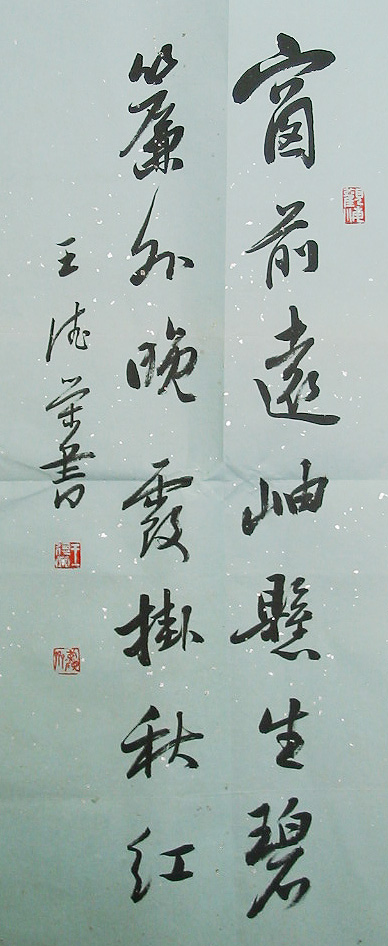 窗前遠岫懸生碧
簾外晚霞掛秋紅
王德荣書